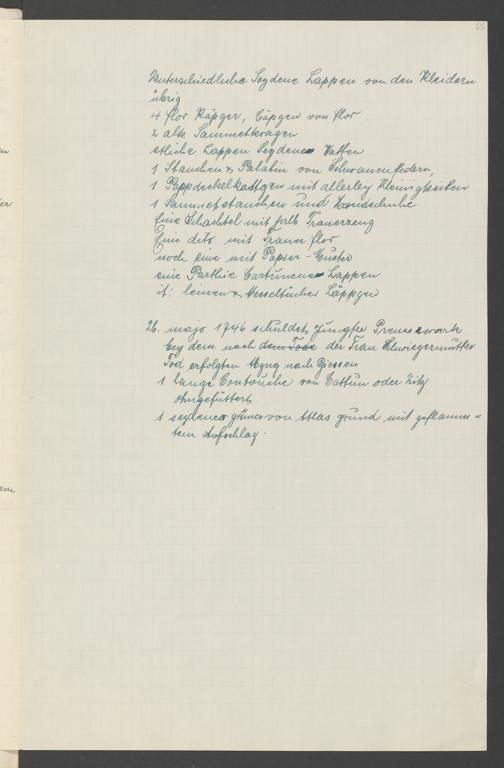 Unterschiedliche Seydene Lappen von den Kleidern
übrig
4 flor Käpger, Cäpgen von flor
2 alte Sammetkragen
etliche Lappen Seydene Watten
1 Stauchen & Palatin von Schwanenfedern,
1 Pappdeckelkästgen mit allerley Kleinigkeiten
1 Sammetstauchen und Handschuhe
Eine Schachtel mit Trauerzeug
Eine dito mit Trauer flor
noch eine mit Papier-Muster
eine Parthie Cartunene Lappen
it: leinen & Nesseltücher Läppger
26. majo 1746 schuldet Jungfer
bey dem nach dem Tode der Frau Schwiegermutter
Tod erfolgten Abzug nach Giessen
1 lange Contouche von Cattun oder Zitz
ohngefüttert
1 seydenes grünes von Atlas grund mit geflamm=
tem Aufschlag.